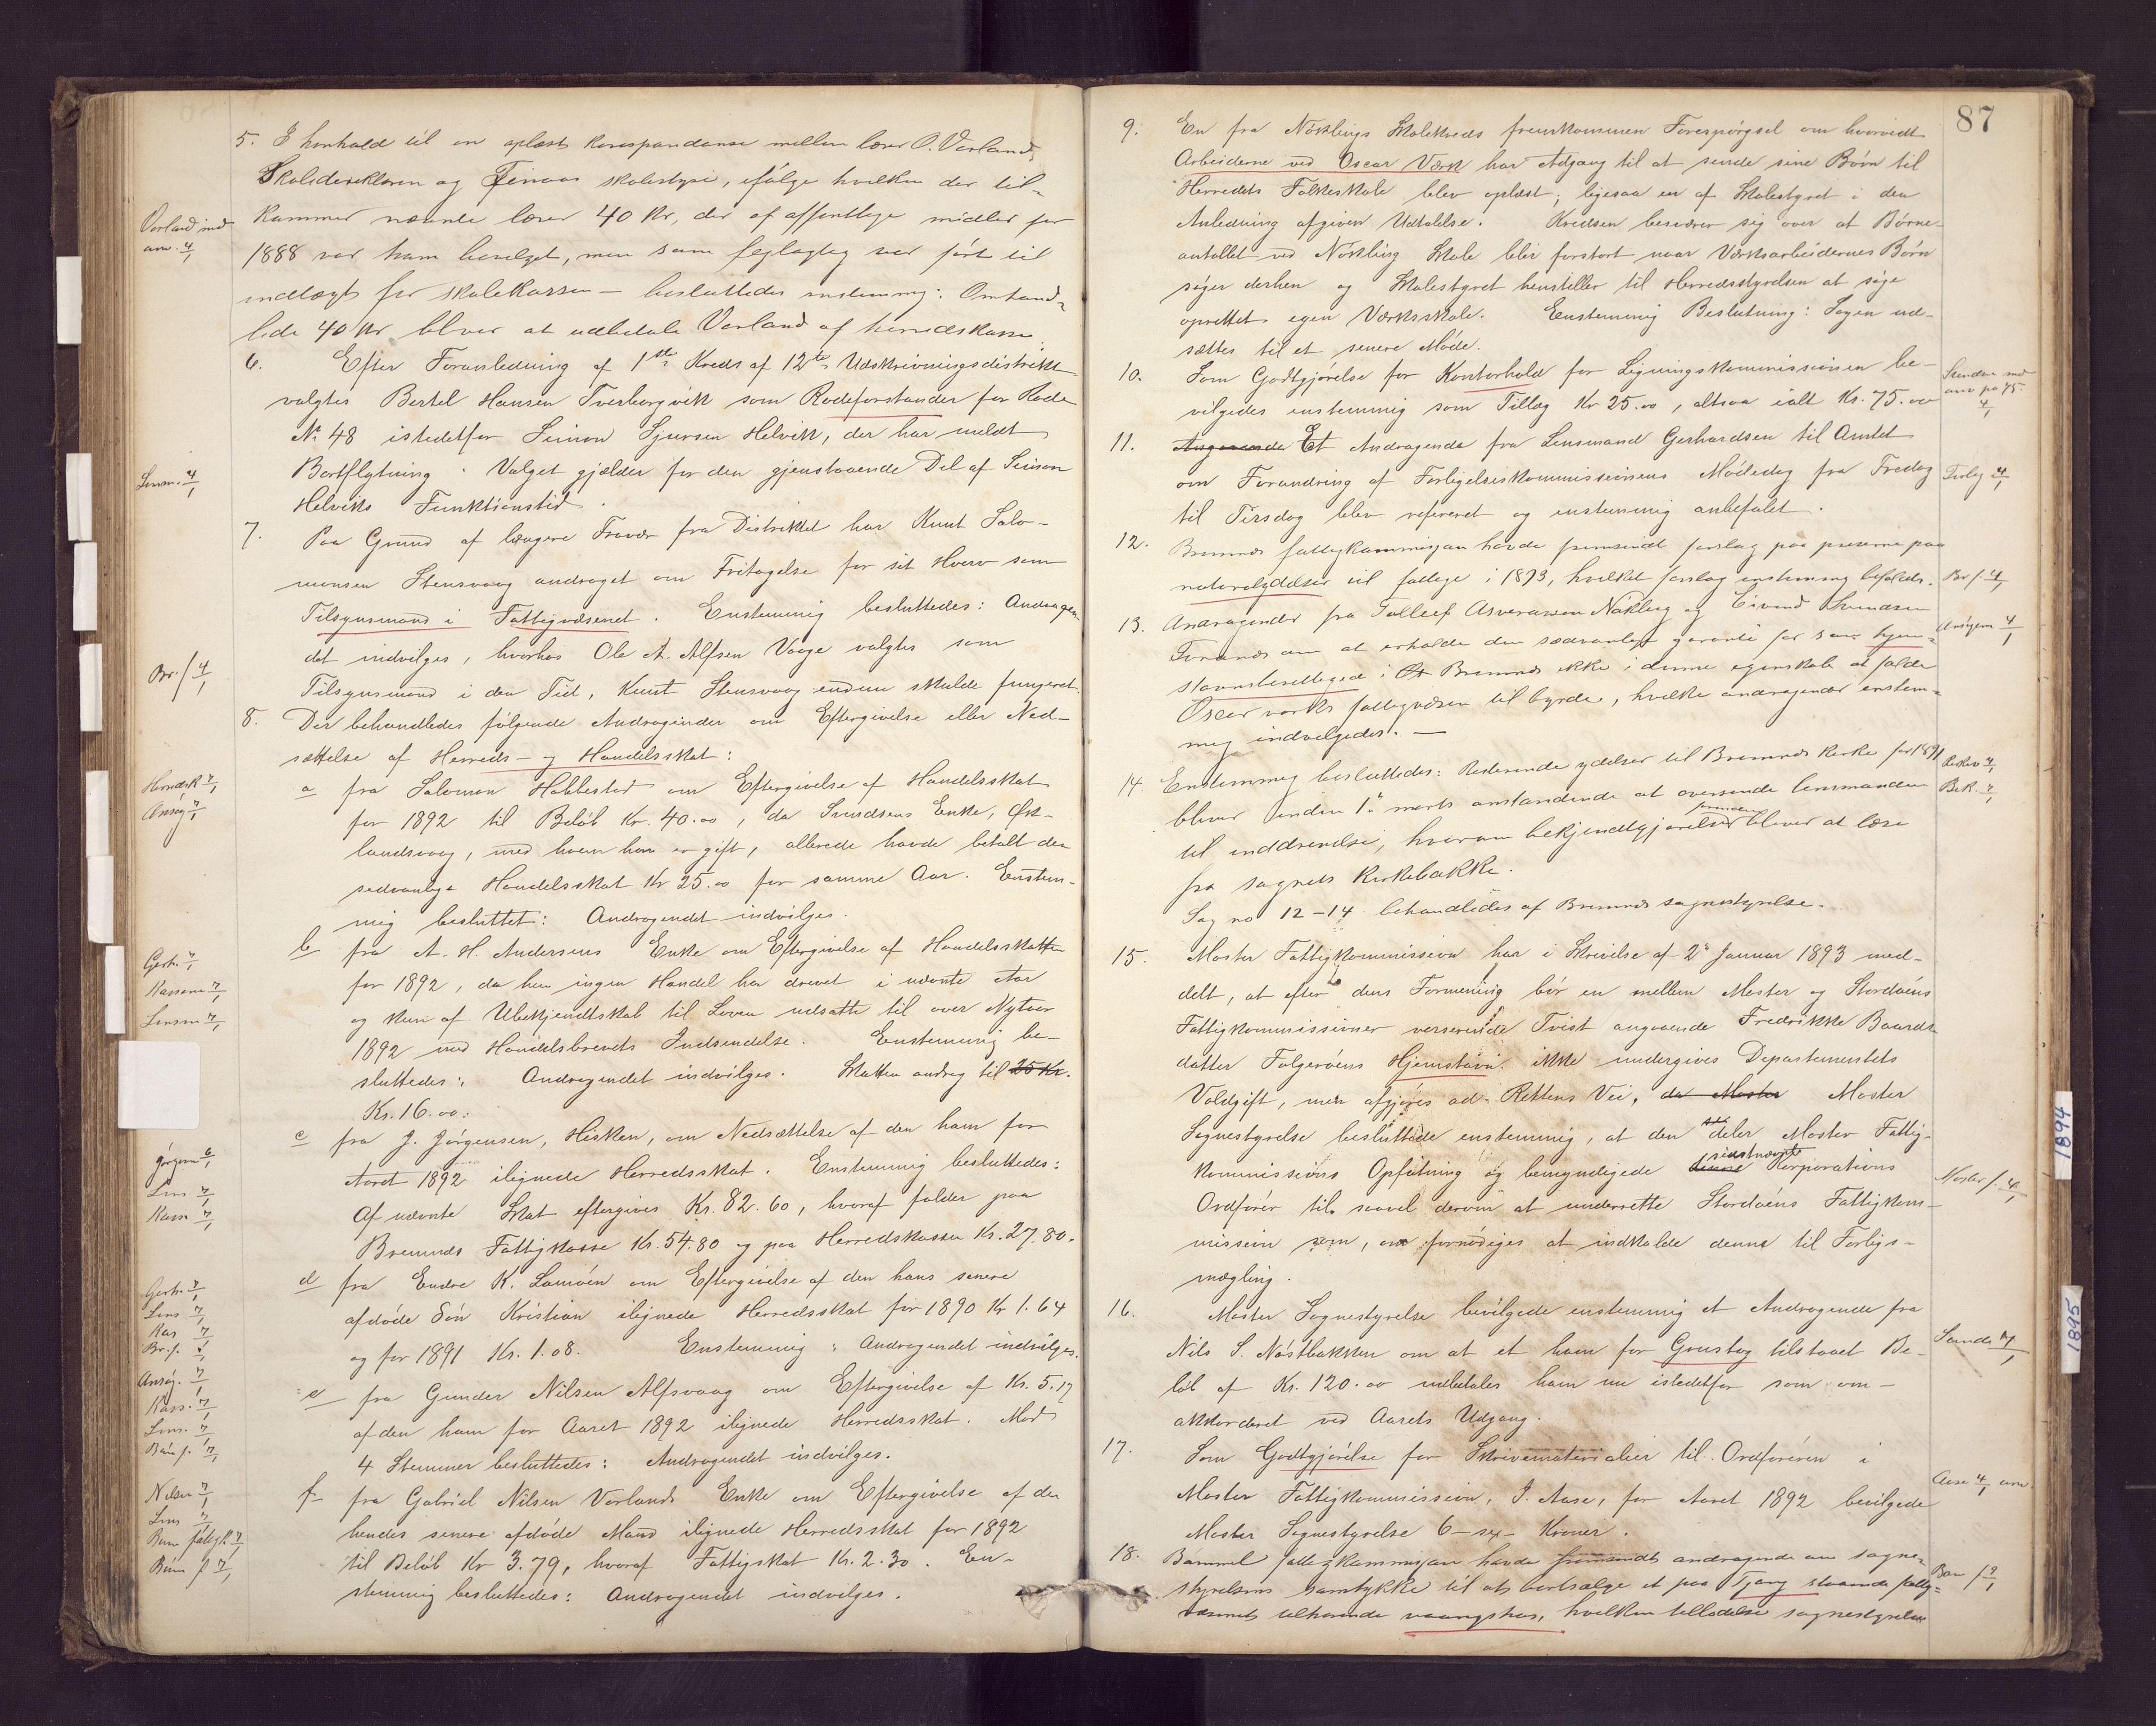 5. I henhold til en oplæst korrespondanse mellem lærer O. Vorland,
Skoledirektøren og Finaas skolestyre, ifølge hvilken der til-
kommer nævnte lærer 40 Kr, der af offentlige midler for
Vorland med
anv. 4/1
1888 var ham bevilget, men som fejlagtig var ført til
indtægt for skolekassen — besluttedes enstemmig: Omhand-
lede 40 Kr bliver at udbetale Vorland af herredskassen.
6. Efter Foranledning af 1ste Kreds af 12te Udskrivningsdistrikt
valgtes Bertel Hansen Tverborgvik som Rodeforstander for Rode
No 48 istedetfor Simon Sjursen Helvik, der har meldt
Lensm. 4/1
Bortflytning. Valget gjælder for den gjenstaaende Del af Simon
Helviks Funktionstid.
7. Paa Grund af længere Fravær fra Distriktet har Knut Salo-
monsen Stensvaag andraget om Fritagelse for sit Hverv som
Tilsynsmand i Fattigvæsenet. Enstemmig besluttedes: Andragen-
det indvilges, hvorhos Ole A. Alfsen Vaage valgtes som
Br. f 4/1
Tilsynsmand i den Tid, Knut Stensvaag endnu skulde fungeret.
8. Der behandledes følgende Andragender om Eftergivelse eller Ned-
sættelse af Herreds- og Handelsskat:
Herredsk 7/1
a fra Salomon Habbestad om Eftergivelse af Handelsskat
Ansøg 7/1
for 1892 til Beløb Kr. 40.00, da Svendsens Enke, Øk-
landsvaag, med hvem han er gift, allerede havde betalt den
sedvanlige Handelsskat Kr 25.00 for samme Aar. Enstem-
mig besluttet: Andragendet indvilges.
b fra A. H. Andersens Enke om Eftergivelse af Handelsskatten
Gerh. 7/1
for 1892, da hun ingen Handel har drevet i nævnte Aar
Kassere 7/1
og kun af Ubekjendtskab til Loven udsatte til over Nytaar
Lensm 7/1
1892 med Handelsbrevets Indsendelse. Enstemmig be-
sluttedes: Andragendet indvilges. Skatten androg til 25 Kr.
Kr. 16.00.
c fra J. Jørgensen, Hisken, om Nedsættelse af den ham for
Jørgens 6/1
Aaret 1892 ilignede Herredsskat. Enstemmig besluttedes:
Lens 7/1
Kass 7/1
Af nævnte Skat eftergives Kr. 82.60, hvoraf falder paa
Bremnæs Fattigkasse Kr. 54.80 og paa Herredskassen Kr. 27.80.
d fra Endre K. Lamøen om Eftergivelse af den hans senere
Gerh. 7/1
Lens 7/1
afdøde Søn Kristian ilignede Herredsskat for 1890 Kr 1.64
Kas 7/1
Br. f.
og for 1891 Kr. 1.08. Enstemmig: Andragendet indvilges.
Ansøg. 7/1
e fra Gunder Nilsen Alfsvaag om Eftergivelse af Kr. 5.17
Kass. 7/1
af den ham for Aaret 1892 ilignede Herredsskat. Mod
Lens. 7/1
Bøm f. 7/1
4 Stemmer besluttedes: Andragendet indvilges.
Nilsen 7/1
f fra Gabriel Nilsen Vorlands Enke om Eftergivelse af den
Lens 7/1
hendes senere afdøde Mand ilignede Herredsskat for 1892
til Beløb Kr 3.79, hvoraf Fattigskat Kr. 2.30. En-
Bøm f 7/1
stemmig besluttedes: Andragendet indvilges.
87
9. En fra Nøklings Skolekreds fremkommen Forespørgsel om hvorvidt
Arbeiderne ved Oscar Værk har Adgang til at sende sine Børn til
Herredets Folkeskole blev oplæst; ligesaa en af Skolestyret i den
Anledning afgiven Udtalelse. Kredsen besværer sig over at Børne-
antallet ved Nøkling Skole blir forstort naar Værksarbeidernes Børn
søger derhen og Skolestyret henstiller til Herredsstyrelsen at søge
oprettet egen Værksskole. Enstemmig Beslutning: Sagen ud-
sættes til et senere Møde.
10. Som Godtgjørelse for Kontorhold for Ligningskommissionen be-
vilgedes enstemmig som Tillæg Kr 25.00, altsaa ialt Kr. 75.00
anv paa 75
4/1
11. Angaaende Et Andragende fra Lensmand Gerhardsen til Amtet
om Forandring af Forligelseskommissionens Mødedag fra Fredag
Forlig 4/1
til Tirsdag blev refereret og enstemmig anbefalet.
12. Bremnes fattigkommisjon havde fremsendt forslag paa priserne paa
naturalydelser til fattige i 1893, hvilket forslag enstemmig befaldes.
Br f. 4/1
13. Andragender fra Tollef Asverassen Nøkling og Eivind Svendsen
Ansøgern 4/1
Foranæs om at erholde den sædvanlige garanti for som hjem-
stavnsberettigede i Bremnes ikke i denne egenskab at falde
Oscar værks fattigvæsen til byrde, hvilke andragender enstem-
mig indvilgedes. —
14. Enstemmig besluttedes: Resterende ydelser til Bremnes kirke for 1891
Kirkev 7/1
bliver inden 1. marts anstundende at oversende lensmanden
Bek. 7/1
til inddrivelse, hvorom bekjendtgjørelse forinden bliver at læse
fra sognets kirkebakke.
Sag no 12-14 behandledes af Bremnæs sognestyrelse.
15. Moster Fattigkommission har i Skrivelse af 2. Januar 1893 med-
delt, at efter dens Formening bør en mellem Moster og Stordøens
Fattigkommissioner verserende Tvist angaaende Fredrikke Baards-
datter Folgerøens Hjemstavn ikke undergives Departementets
Voldgift, men afgjøres ad Rettens Vei, da Moster Moster
Sognestyrelse besluttede enstemmig, at den deler Moster Fattig-
kommissions Opfatning og bemyndigede denne sidstnævnte Korporations
Moster f. 4/1
Ordfører til saavel derom at underrette Stordøens Fattigkom-
mission som, om fornødiges at indkalde denne til Forligs-
mægling.
16. Moster Sognestyrelse bevilgede enstemmig et Andragende fra
Nils S. Nøstbakken om at et ham for Grustag tilstaaet Be-
løb af Kr. 120.00 udbetales ham nu istedetfor som om-
akkorderet ved Aarets Udgang.
17. Som Godtgjørelse for Skrivematerialier til Ordføreren i
Aase 4/1 anv.
Moster Fattigkommission, J. Aase, for Aaret 1892 bevilgede
Moster Sognestyrelse 6 — sex — Kroner.
18. Bømmel fattigkommisjon havde fremsendt andragende om sogne-
styrelsens samtykke til at bortsælge et paa Tjong staaende fattig-
væsenet tilhørende vaaningshus, hvilken tilladelse sognestyrelsen
1894
1895